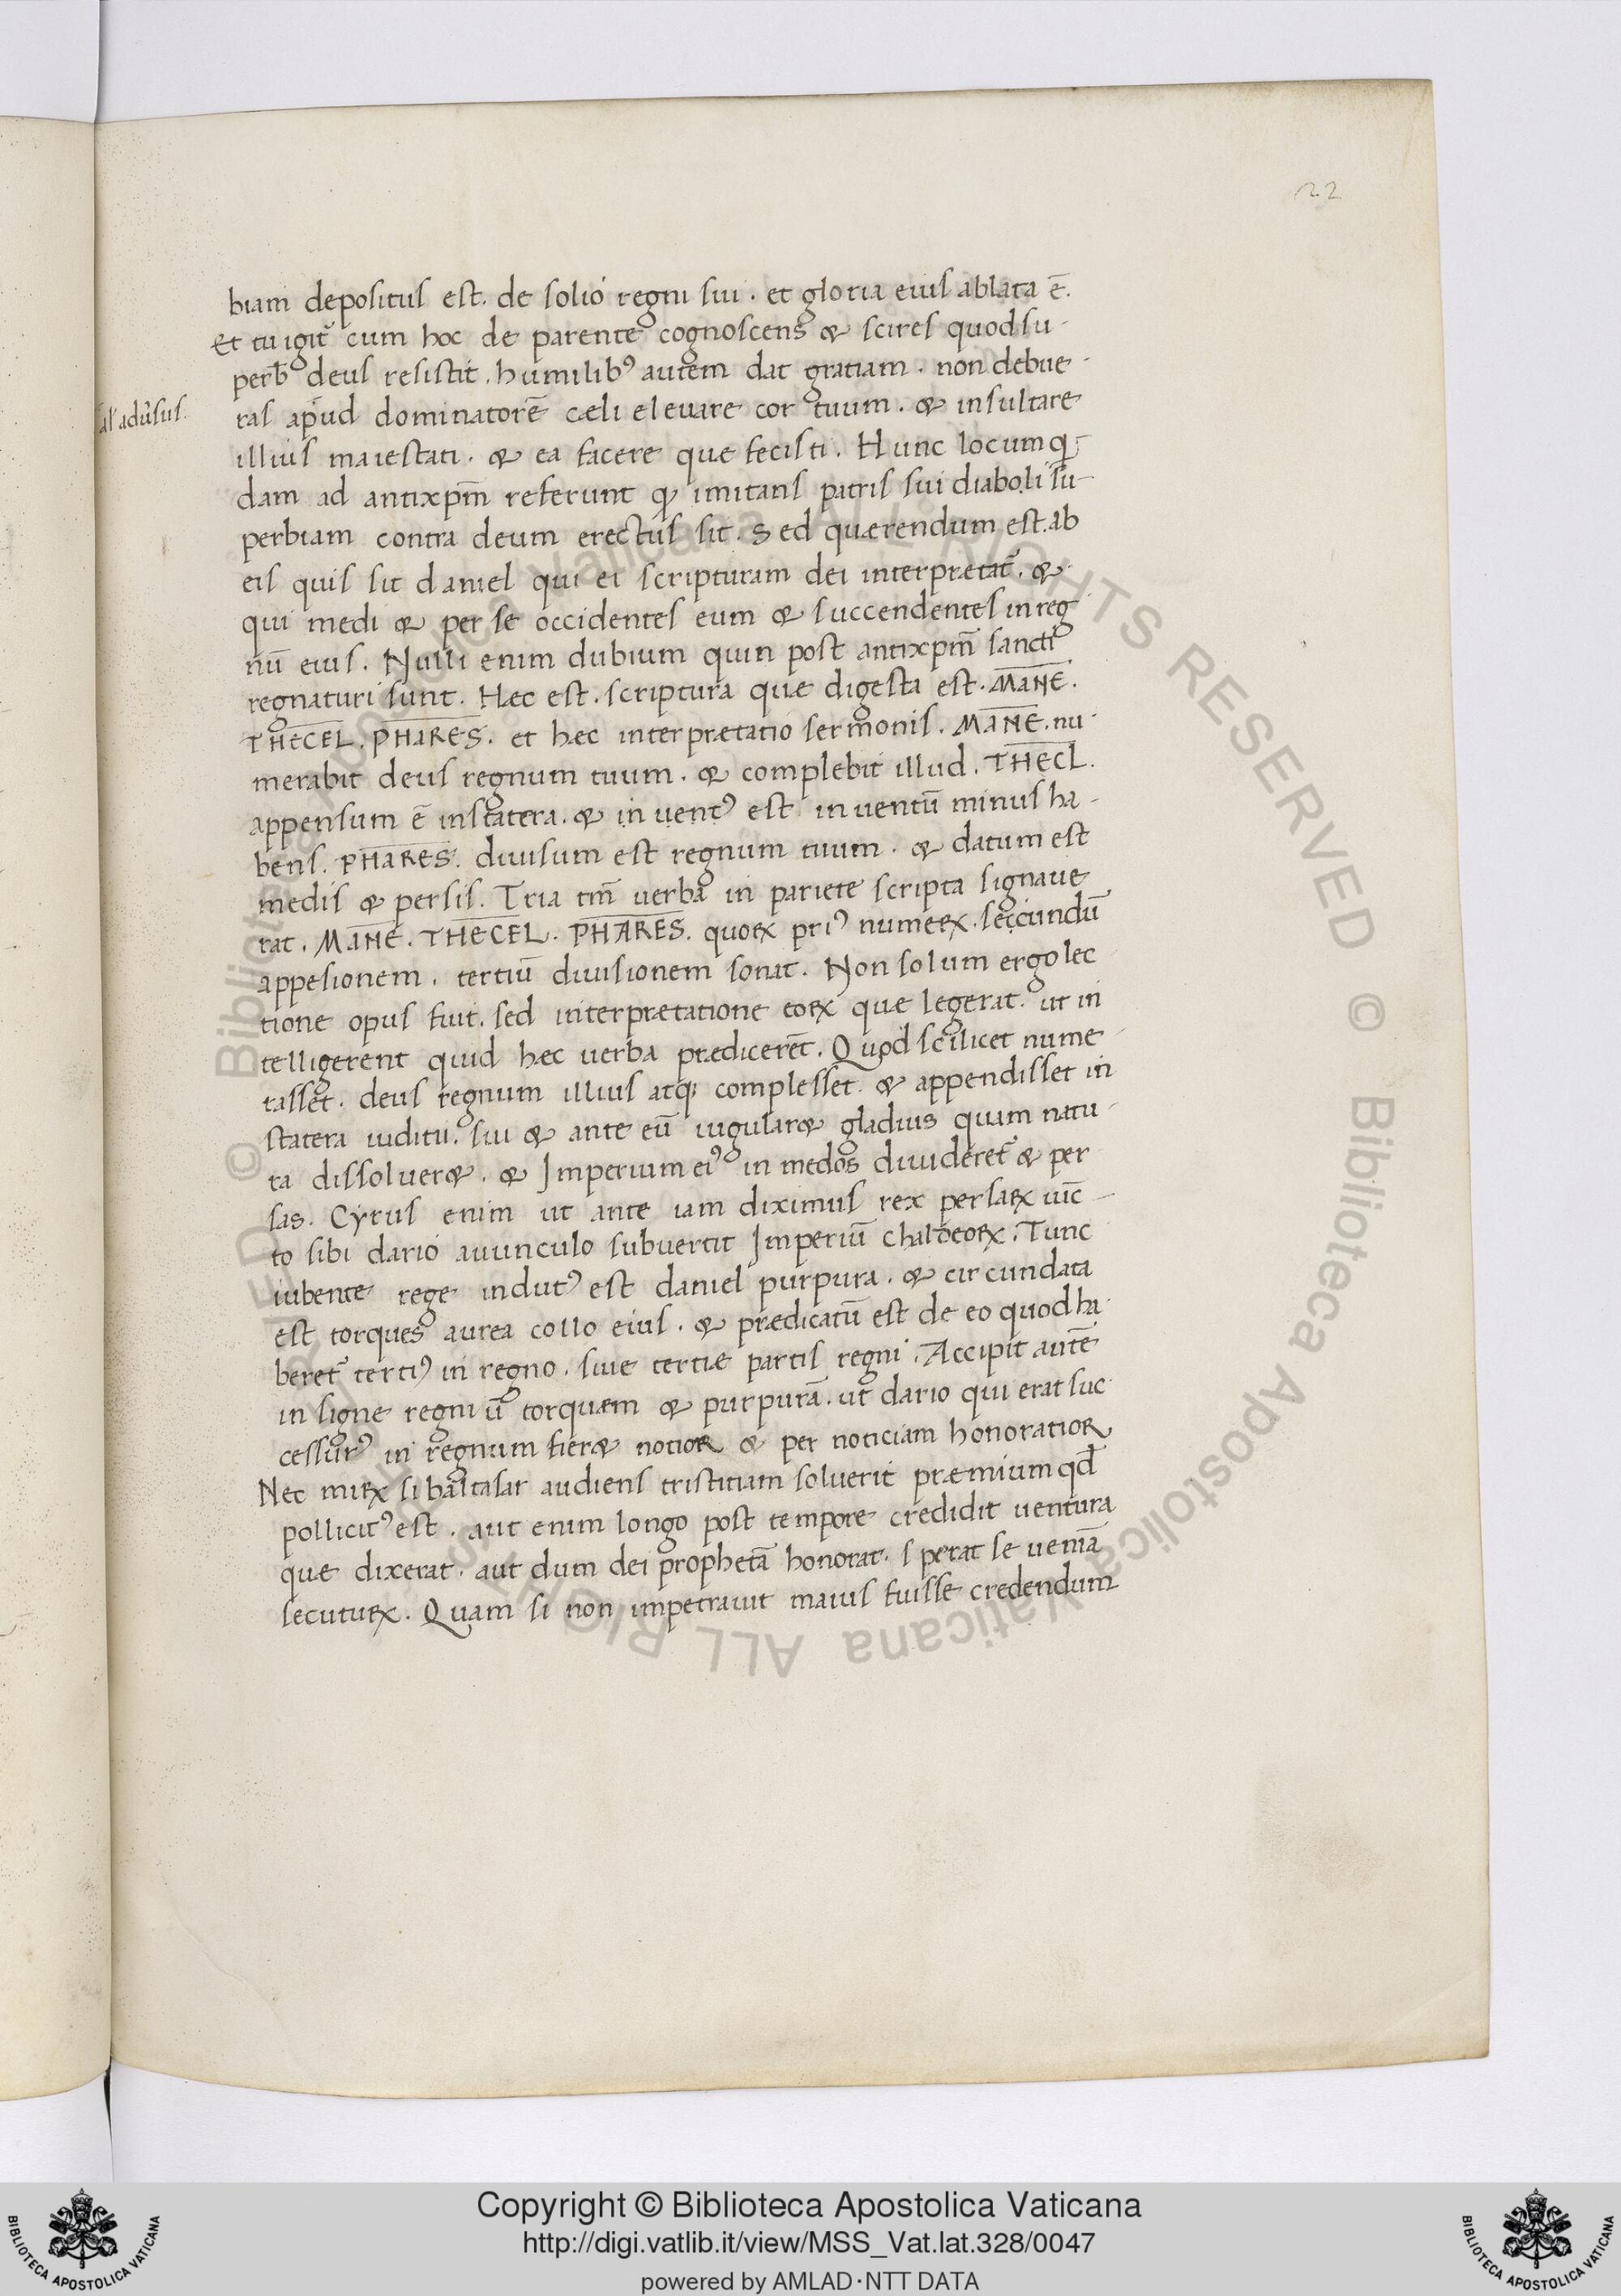 22
biam depositus est. de solio regni sui. et gloria eius ablata ē.
Et tu igit̄ cum hoc de parente cognoscens & scires quod su-
perƀ deus resistit. humilibꝰ autem dat gratiam. non debue-
al' adūsus.
ras apud dominatorē cæli elevare cor tuum. & insultare
illius maiestati. & ea facere que fecisti. Hunc locum q̄-
dam ad antixp̄m referunt qđ imitans patris sui diaboli su-
perbiam contra deum erectus sit. Sed quærendum est. ab
eis quis sit daniel qui ei scripturam dei interpretat̄. &
qui medi & per se occidentes eum & succendentes in reg
nū eius. Nulli enim dubium quin post antixp̄m sancti
regnaturi sunt. Hæc est. scriptura que digesta est. MANE.
THECEL. PHARES. et hæc interpretatio sermonis. MANE. nu-
merabit deus regnum tuum. & complebit illud. THECL.
appensum ē in statera. & in ventꝰ est in ventū minus ha-
bens. PHARES. divisum est regnum tuum. & datum est
medis & persis. Tria tm̄ verba in pariete scripta signave
rat. MANE. THECEL. PHARES. quoꝝ priꝰ numeꝝ. seccundū
appesionem. tertiū divisionem sonat. Non solum ergo lec
tione opus fuit. sed interpretatione eoꝝ que legerat. ut in
telligerent quid hæc verba prædicerēt. Quod scilicet nume-
rasset. deus regnum illius atq; complesset. & appendisset in
statera iuditii. sui & ante eū iugular& gladius quam natu-
ra dissolver&. & Imperium eiꝰ in medos divideret̄ & per
sas. Cyrus enim ut ante iam diximus rex persaꝝ iūc-
to sibi dario avunculo subvertit Imperiū chaldeoꝝ. Tunc
iubente rege indutꝰ est daniel purpura. & circundata
est torques aurea collo eius. & prædicatū est de eo quod ha-
beret̄ tertiꝰ in regno. sive tertiæ partis regni. Accipit autē
in signe regni ū torquem & purpurā. ut dario qui erat suc-
cessurꝰ in regnum fier& notior & per noticiam honoratior
Nec miꝝ si baltasar audiens tristitiam solverit præmium qd̄
pollicitꝰ est. aut enim longo post tempore credidit ventura
que dixerat. aut dum dei prophetā honorat. sperat se veniā
secutuꝝ. Quam si non impetravit maius fuisse credendum
Copyright © Biblioteca Apostolica Vaticana
http://digi.vatlib.it/view/MSS_Vat.lat.328/0047
powered by AMLAD·NTT DATA
BIBLIOTECA APOSTOLICA VATICANA
BIBLIOTECA APOSTOLICA VATICANA
© Biblioteca Apostolica Vaticana ALL RIGHTS RESERVED
© Biblioteca Apostolica Vaticana ALL RIGHTS RESERVED